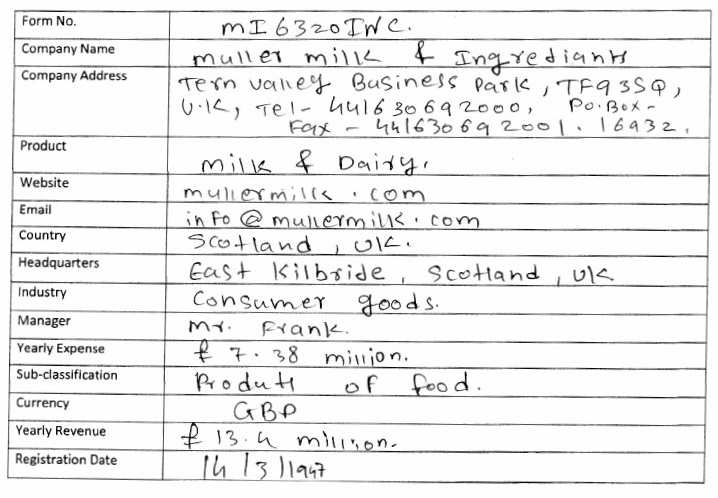 Form No. MI6320INC.
Company Name Muller milk & Ingrediants
Company Address Tern valley Business Park, TF93SQ,
U.K, Tel- 441630692000, Po.Box-
Fax - 441630692001. 16932.
Product Milk & Dairy.
Website mullermilk.com
Email info@mullermilk.com
Country Scotland, UK.
Headquarters East Kilbride, Scotland, UK
Industry Consumer goods.
Manager Mr. Frank.
Yearly Expense £ 7.38 million.
Sub-classification Produts of food.
Currency GBP
Yearly Revenue £ 13.4 million.
Registration Date 14/3/1947